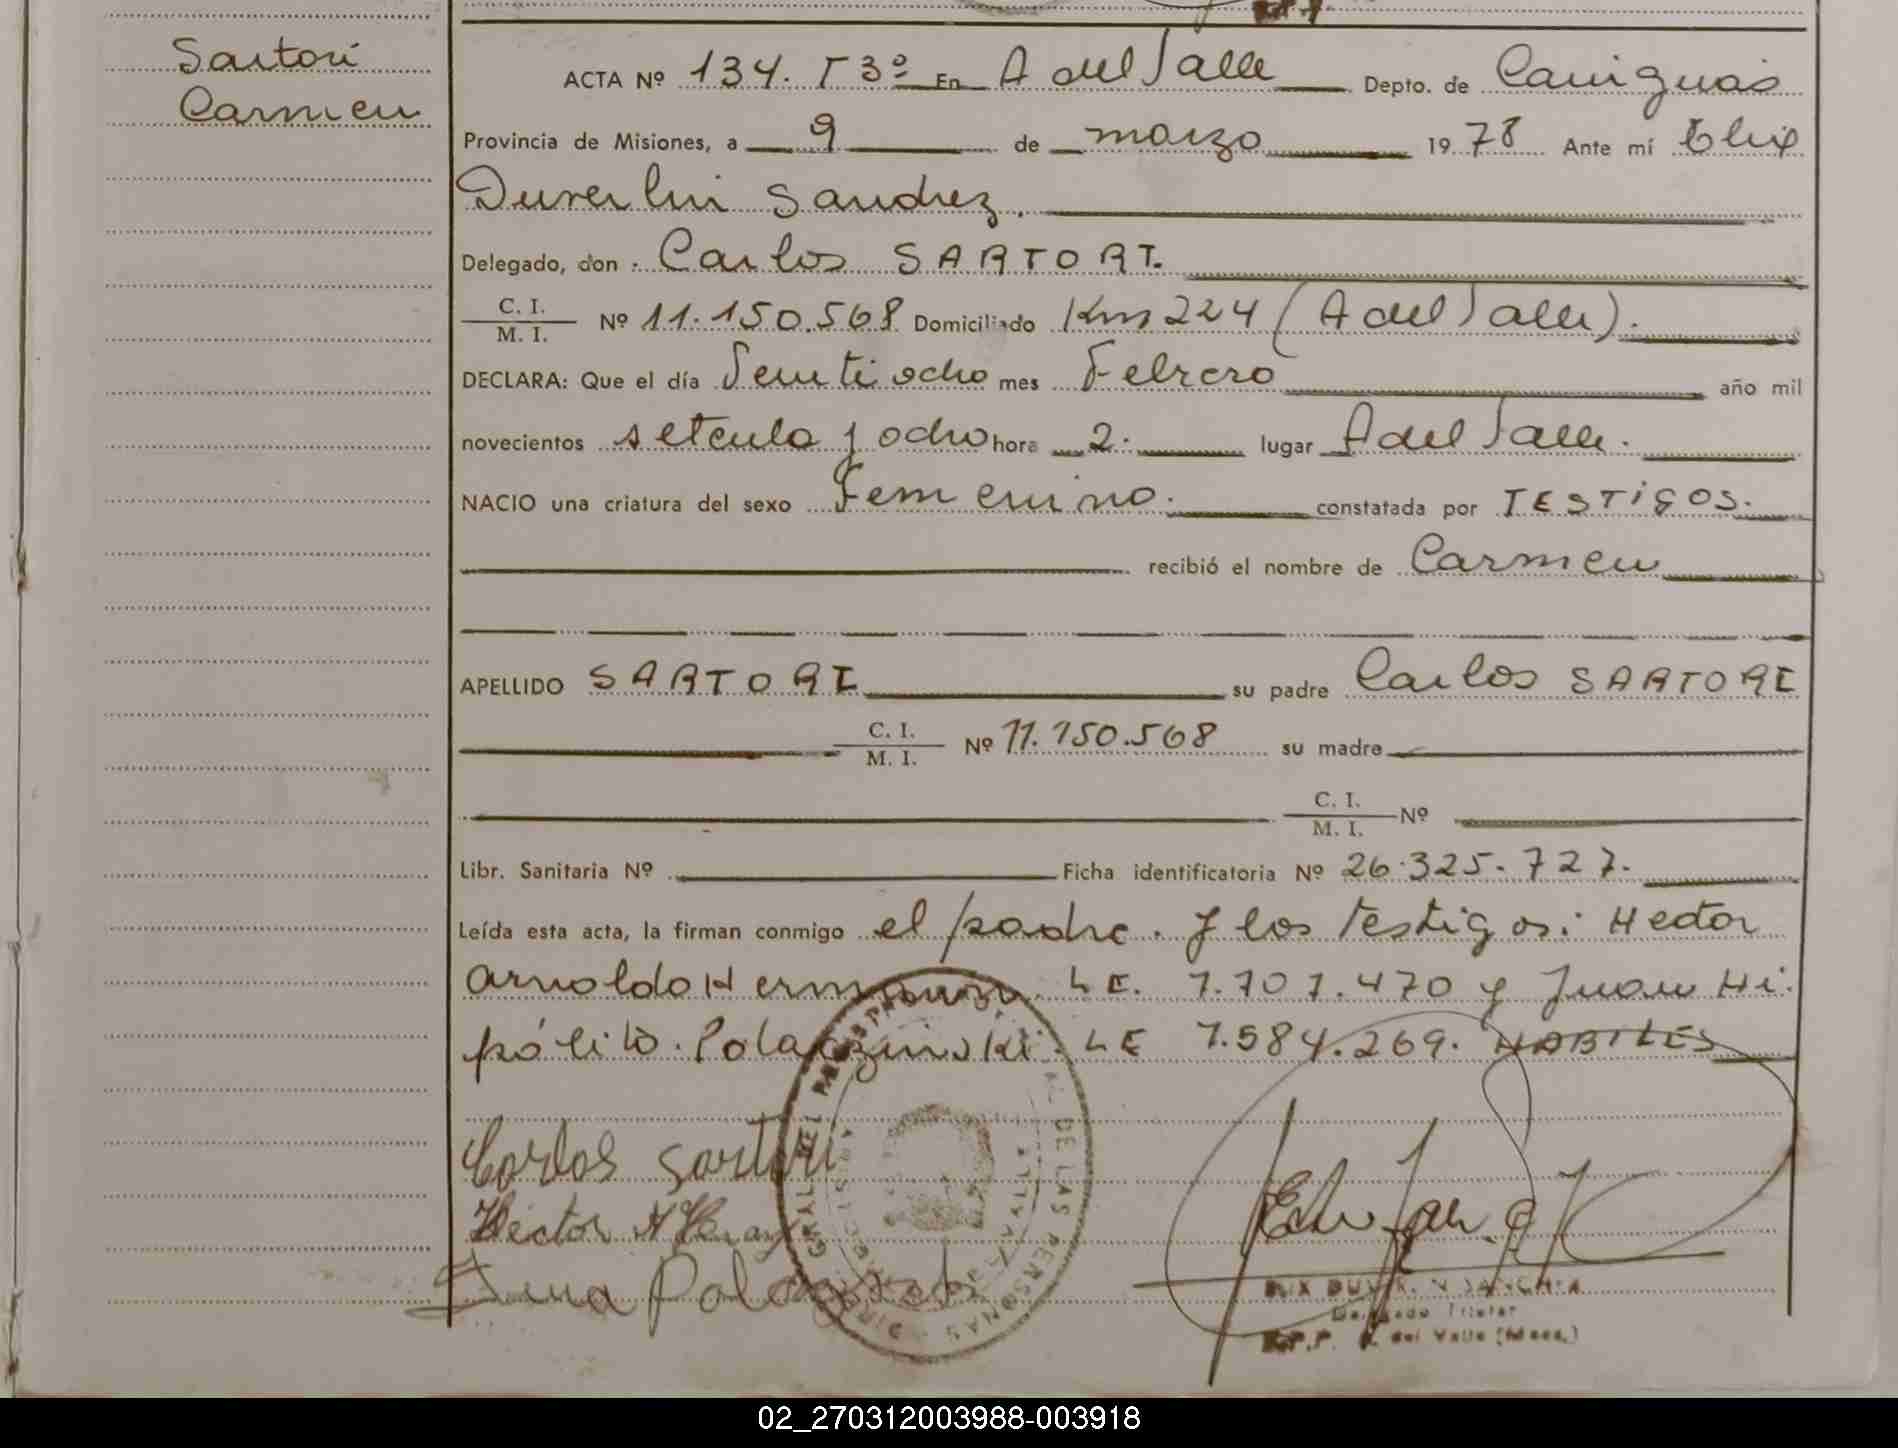 Sartori
Carmen
ACTA Nº 134. T 3º En A del Valle Depto. de Cainguás
Provincia de Misiones, a 9 de marzo 1978 Ante mí Elix
Duverlin Sanchez.
Delegado, don Carlos SARTORI.
C. I.
M. I. Nº 11.150.568 Domiciliado Km 224 (A del Valle).
DECLARA: Que el día Veintiocho mes Febrero año mil
novecientos setenta y ocho hora 2. lugar A del Valle.
NACIO una criatura del sexo Femenino. constatada por TESTIGOS.
recibió el nombre de Carmen
APELLIDO SARTORI su padre Carlos SARTORI
C. I.
M. I. Nº 11.150.568 su madre
C. I.
M. I. Nº
Libr. Sanitaria Nº Ficha identificatoria Nº 26.325.727.
Leída esta acta, la firman conmigo el padre. y los testigos: Hector
Arnoldo Hermann. LE. 7.707.470 y Juan Hi
pólito. Polaczinski. LE 7.584.269. HABILES
Carlos Sartori
Héctor A
DE LAS PERSONAS
Delegado Titular
R.P.P. A. del Valle (Mnes.)
02_270312003988-003918